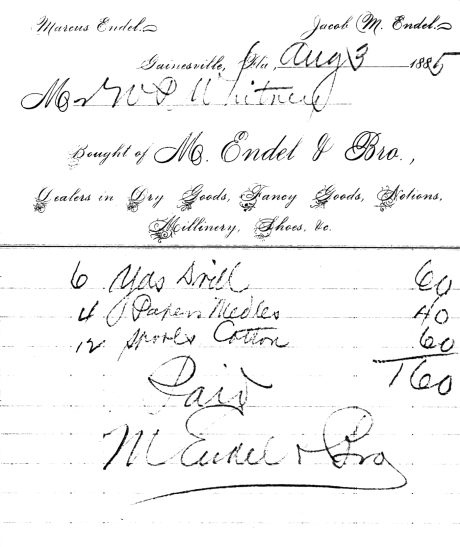 Marcus Endel. Jacob M. Endel.
Gainesville, Fla., Aug 3 1885
Mr W P Whitney
Bought of M. Endel & Bro.,
Dealers in Dry Goods, Fancy Goods, Notions,
Millinery, Shoes, &c.
6 Yds Drill 60
4 Papers Needles 40
12 Spools Cotton 60
160
Paid
M Endel & Bro